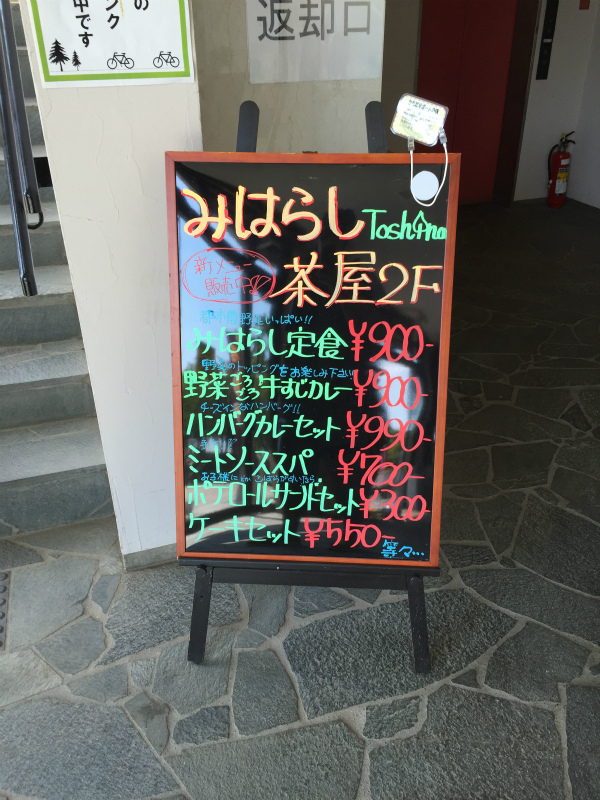 の
ンク
中です
返却口
みはらし Toshima
茶屋2F
新メニュー
販売中!!
野菜いっぱい!!
みはらし定食 ¥900-
野菜のトッピングをお楽しみ下さい
野菜ごろごろ牛すじカレー ¥900-
チーズインなハンバーグ!!
ハンバーグカレーセット ¥990-
ミートソーススパ ¥700-
お子様に
ポテロールサンドセット ¥300-
ケーキセット ¥550-
等々...